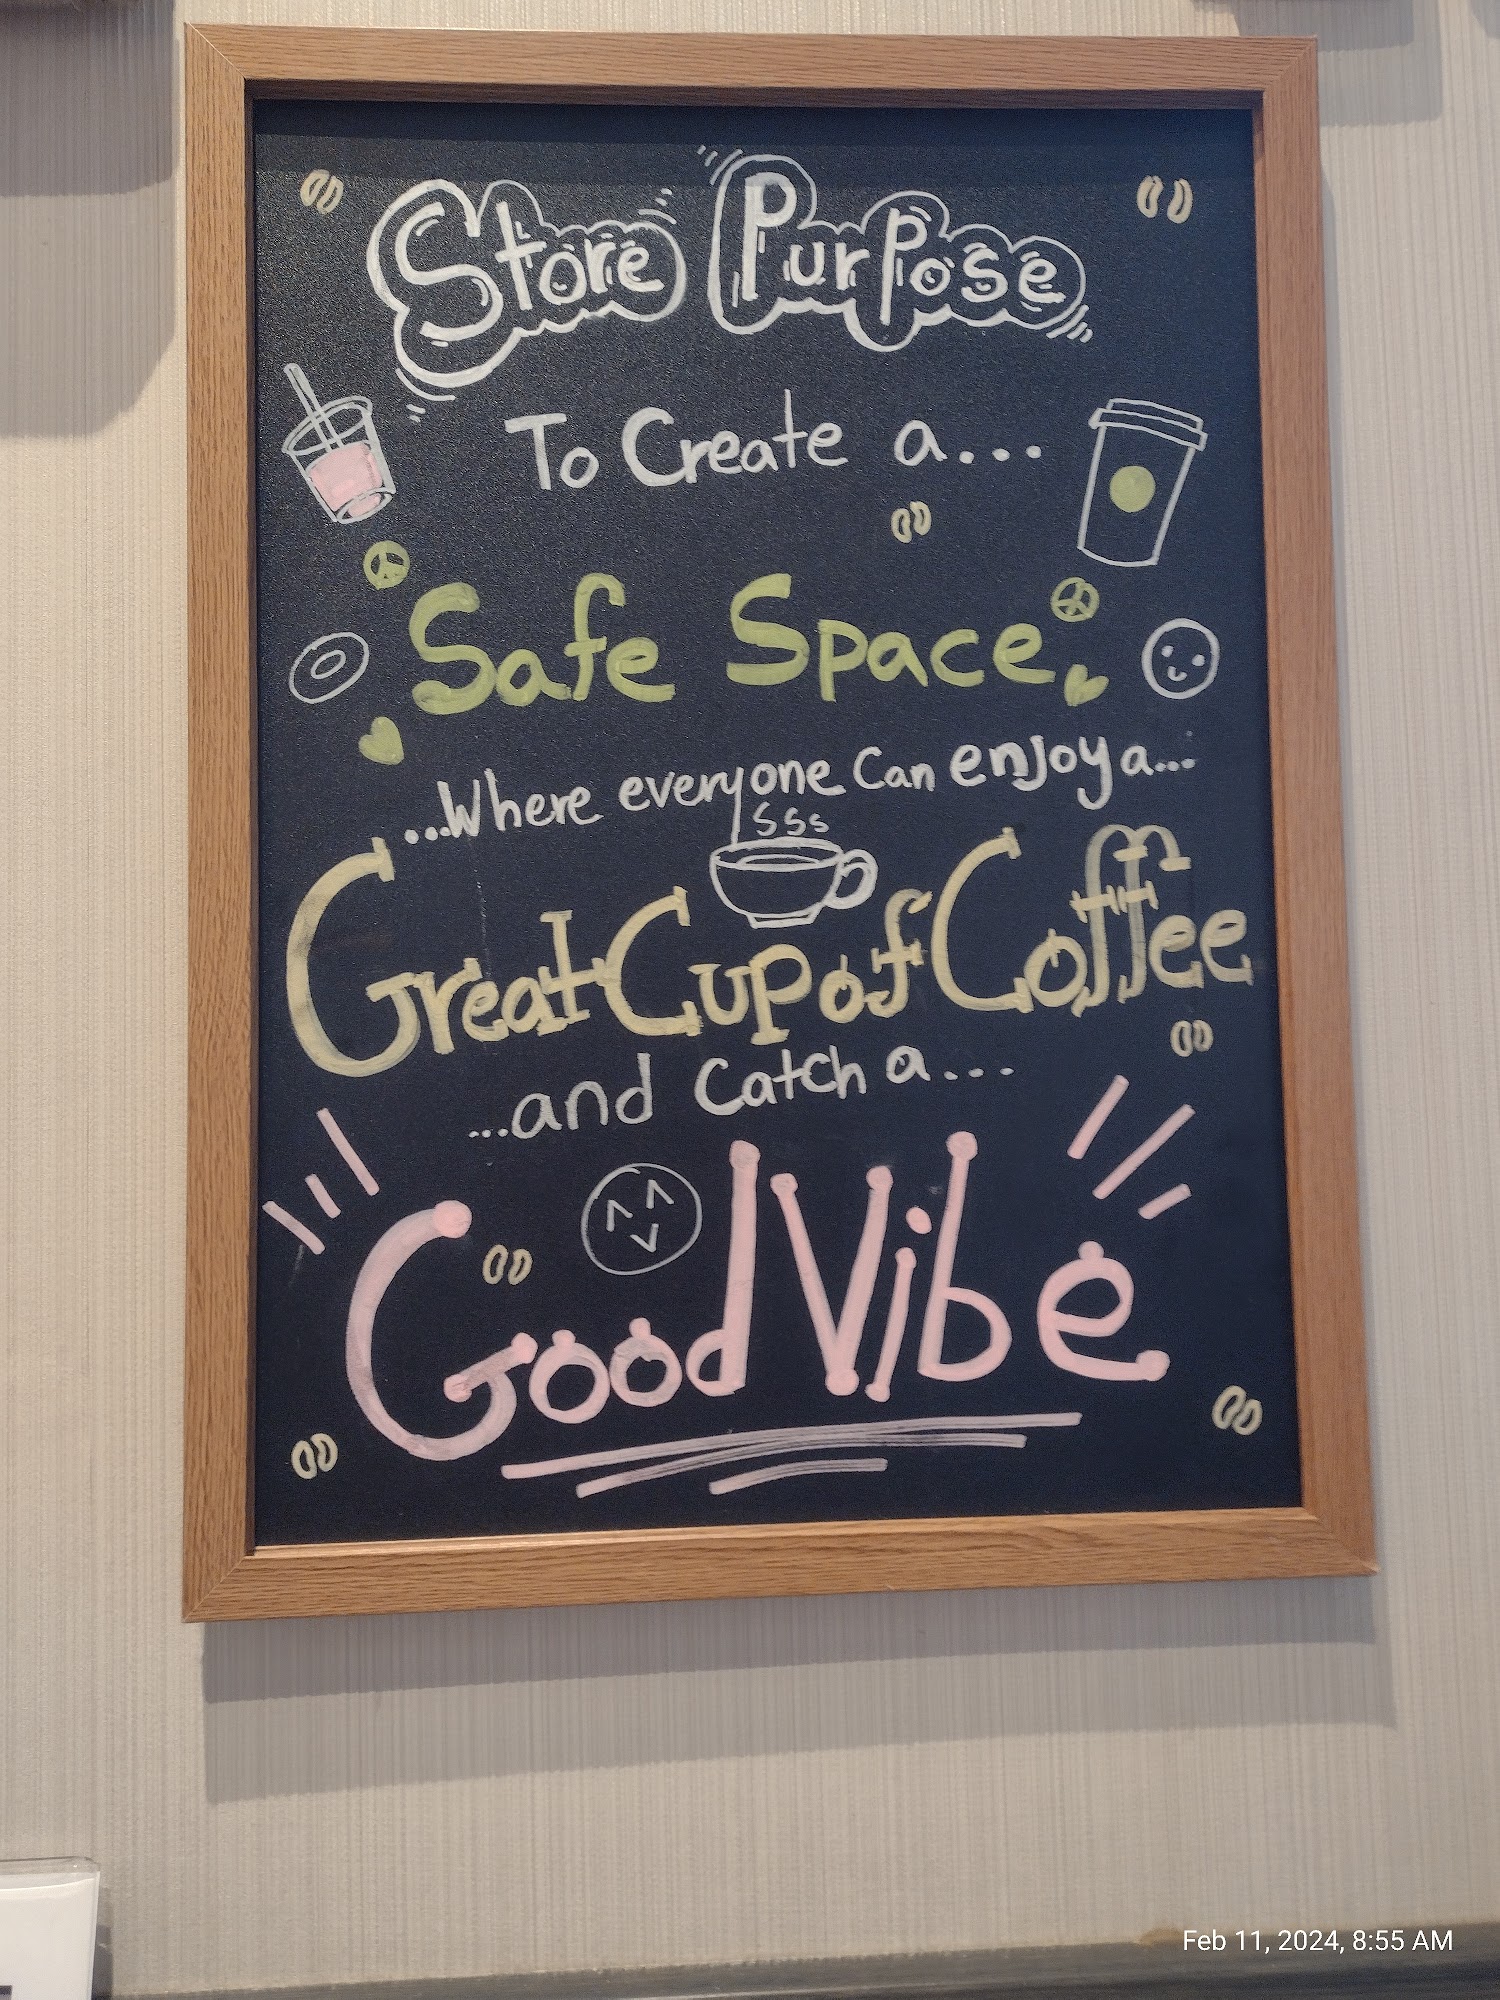 Store Purpose
To Create a...
Safe Space
...Where everyone Can enjoy a...
sss
Great Cup of Coffee
...and Catch a...
Good Vibe
Feb 11, 2024, 8:55 AM